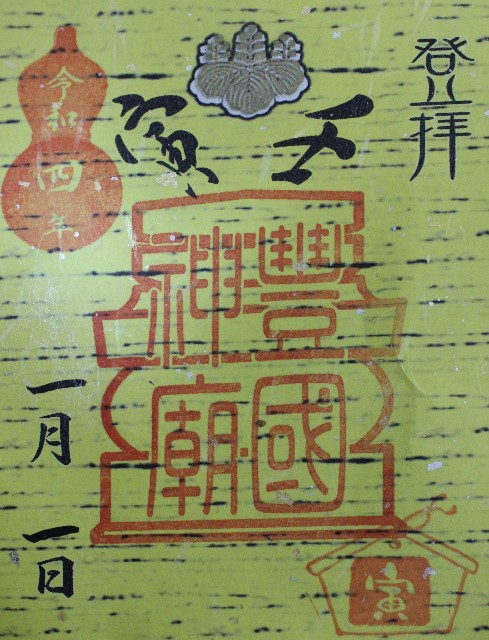 登拝
壬寅
豐國
神廟
令和四年
一月
一日
寅